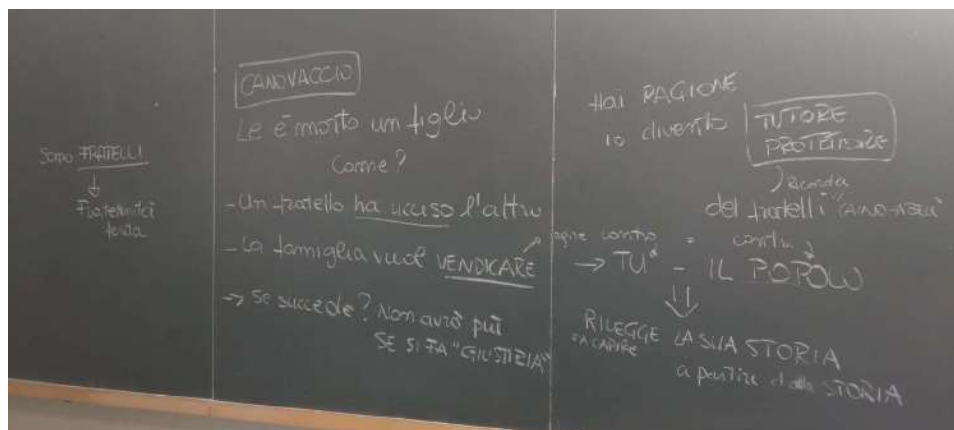 Sono FRATELLI
↓
Fraternità
ferita
CANOVACCIO
Le è morto un figlio
Come?
- Un fratello ha ucciso l'altro
- La famiglia vuol VENDICARE
→ Se succede? Non avrò più
SE SI FA "GIUSTIZIA"
Hai RAGIONE
io divento TUTORE
PROTETTORE
Ricorda
dei fratelli "CAINO-ABELE"
agire contro = contro
→ TU - IL POPOLO
⇓
RILEGGE LA SUA STORIA
FA CAPIRE
a partire dalla STORIA